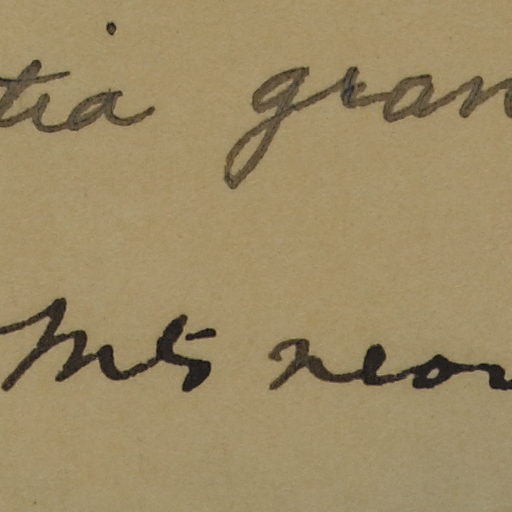 tia gran
Mts near